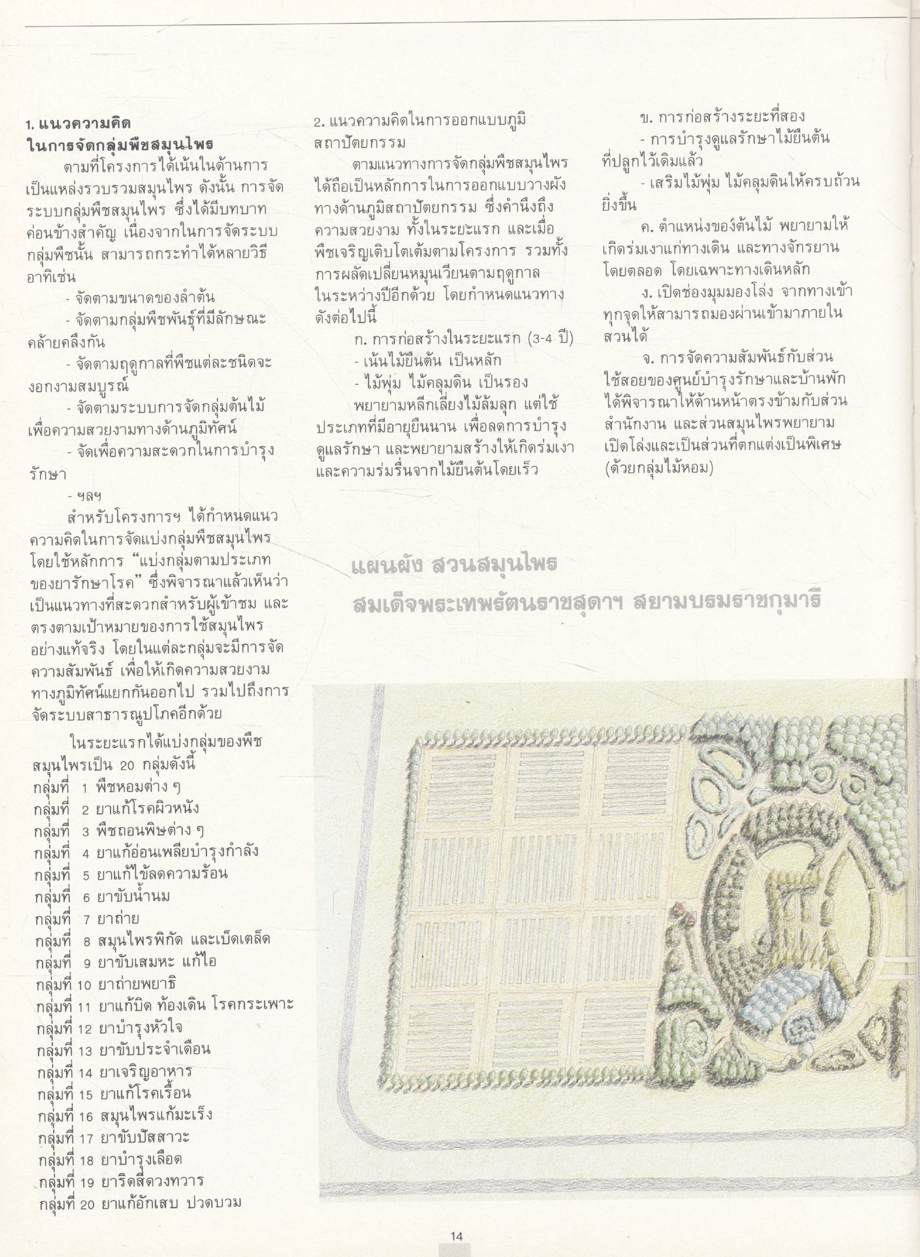 1. แนวความคิด
ในการจัดกลุ่มพืชสมุนไพร
ตามที่โครงการได้เน้นในด้านการ
เป็นแหล่งรวบรวมสมุนไพร ดังนั้น การจัด
ระบบกลุ่มพืชสมุนไพร ซึ่งได้มีบทบาท
ค่อนข้างสำคัญ เนื่องจากในการจัดระบบ
กลุ่มพืชนั้น สามารถกระทำได้หลายวิธี
อาทิเช่น
- จัดตามขนาดของลำต้น
- จัดตามกลุ่มพืชพันธุ์ที่มีลักษณะ
คล้ายคลึงกัน
- จัดตามฤดูกาลที่พืชแต่ละชนิดจะ
งอกงามสมบูรณ์
- จัดตามระบบการจัดกลุ่มต้นไม้
เพื่อความสวยงามทางด้านภูมิทัศน์
- จัดเพื่อความสะดวกในการบำรุง
รักษา
- ฯลฯ
สำหรับโครงการฯ ได้กำหนดแนว
ความคิดในการจัดแบ่งกลุ่มพืชสมุนไพร
โดยใช้หลักการ “แบ่งกลุ่มตามประเภท
ของยารักษาโรค” ซึ่งพิจารณาแล้วเห็นว่า
เป็นแนวทางที่สะดวกสำหรับผู้เข้าชม และ
ตรงตามเป้าหมายของการใช้สมุนไพร
อย่างแท้จริง โดยในแต่ละกลุ่มจะมีการจัด
ความสัมพันธ์ เพื่อให้เกิดความสวยงาม
ทางภูมิทัศน์แยกกันออกไป รวมไปถึงการ
จัดระบบสาธารณูปโภคอีกด้วย
ในระยะแรกได้แบ่งกลุ่มของพืช
สมุนไพรเป็น 20 กลุ่มดังนี้
กลุ่มที่ 1 พืชหอมต่าง ๆ
กลุ่มที่ 2 ยาแก้โรคผิวหนัง
กลุ่มที่ 3 พืชถอนพิษต่าง ๆ
กลุ่มที่ 4 ยาแก้อ่อนเพลียบำรุงกำลัง
กลุ่มที่ 5 ยาแก้ไข้ลดความร้อน
กลุ่มที่ 6 ยาขับน้ำนม
กลุ่มที่ 7 ยาถ่าย
กลุ่มที่ 8 สมุนไพรพิกัด และเบ็ดเตล็ด
กลุ่มที่ 9 ยาขับเสมหะ แก้ไอ
กลุ่มที่ 10 ยาถ่ายพยาธิ
กลุ่มที่ 11 ยาแก้บิด ท้องเดิน โรคกระเพาะ
กลุ่มที่ 12 ยาบำรุงหัวใจ
กลุ่มที่ 13 ยาขับประจำเดือน
กลุ่มที่ 14 ยาเจริญอาหาร
กลุ่มที่ 15 ยาแก้โรคเรื้อน
กลุ่มที่ 16 สมุนไพรแก้มะเร็ง
กลุ่มที่ 17 ยาขับปัสสาวะ
กลุ่มที่ 18 ยาบำรุงเลือด
กลุ่มที่ 19 ยาริดสีดวงทวาร
กลุ่มที่ 20 ยาแก้อักเสบ ปวดบวม
2. แนวความคิดในการออกแบบภูมิ
สถาปัตยกรรม
ตามแนวทางการจัดกลุ่มพืชสมุนไพร
ได้ถือเป็นหลักการในการออกแบบวางผัง
ทางด้านภูมิสถาปัตยกรรม ซึ่งคำนึงถึง
ความสวยงาม ทั้งในระยะแรก และเมื่อ
พืชเจริญเติบโตเต็มตามโครงการ รวมทั้ง
การผลัดเปลี่ยนหมุนเวียนตามฤดูกาล
ในระหว่างปีอีกด้วย โดยกำหนดแนวทาง
ดังต่อไปนี้
ก. การก่อสร้างในระยะแรก (3-4 ปี)
- เน้นไม้ยืนต้น เป็นหลัก
- ไม้พุ่ม ไม้คลุมดิน เป็นรอง
พยายามหลีกเลี่ยงไม้ล้มลุก แต่ใช้
ประเภทที่มีอายุยืนนาน เพื่อลดการบำรุง
ดูแลรักษา และพยายามสร้างให้เกิดร่มเงา
และความร่มรื่นจากไม้ยืนต้นโดยเร็ว
ข. การก่อสร้างระยะที่สอง
- การบำรุงดูแลรักษาไม้ยืนต้น
ที่ปลูกไว้เดิมแล้ว
- เสริมไม้พุ่ม ไม้คลุมดินให้ครบถ้วน
ยิ่งขึ้น
ค. ตำแหน่งของต้นไม้ พยายามให้
เกิดร่มเงาแก่ทางเดิน และทางจักรยาน
โดยตลอด โดยเฉพาะทางเดินหลัก
ง. เปิดช่องมุมมองโล่ง จากทางเข้า
ทุกจุดให้สามารถมองผ่านเข้ามาภายใน
สวนได้
จ. การจัดความสัมพันธ์กับส่วน
ใช้สอยของศูนย์บำรุงรักษาและบ้านพัก
ได้พิจารณาให้ด้านหน้าตรงข้ามกับส่วน
สำนักงาน และส่วนสมุนไพรพยายาม
เปิดโล่งและเป็นส่วนที่ตกแต่งเป็นพิเศษ
(ด้วยกลุ่มไม้หอม)
แผนผัง สวนสมุนไพร
สมเด็จพระเทพรัตนราชสุดาฯ สยามบรมราชกุมารี
14